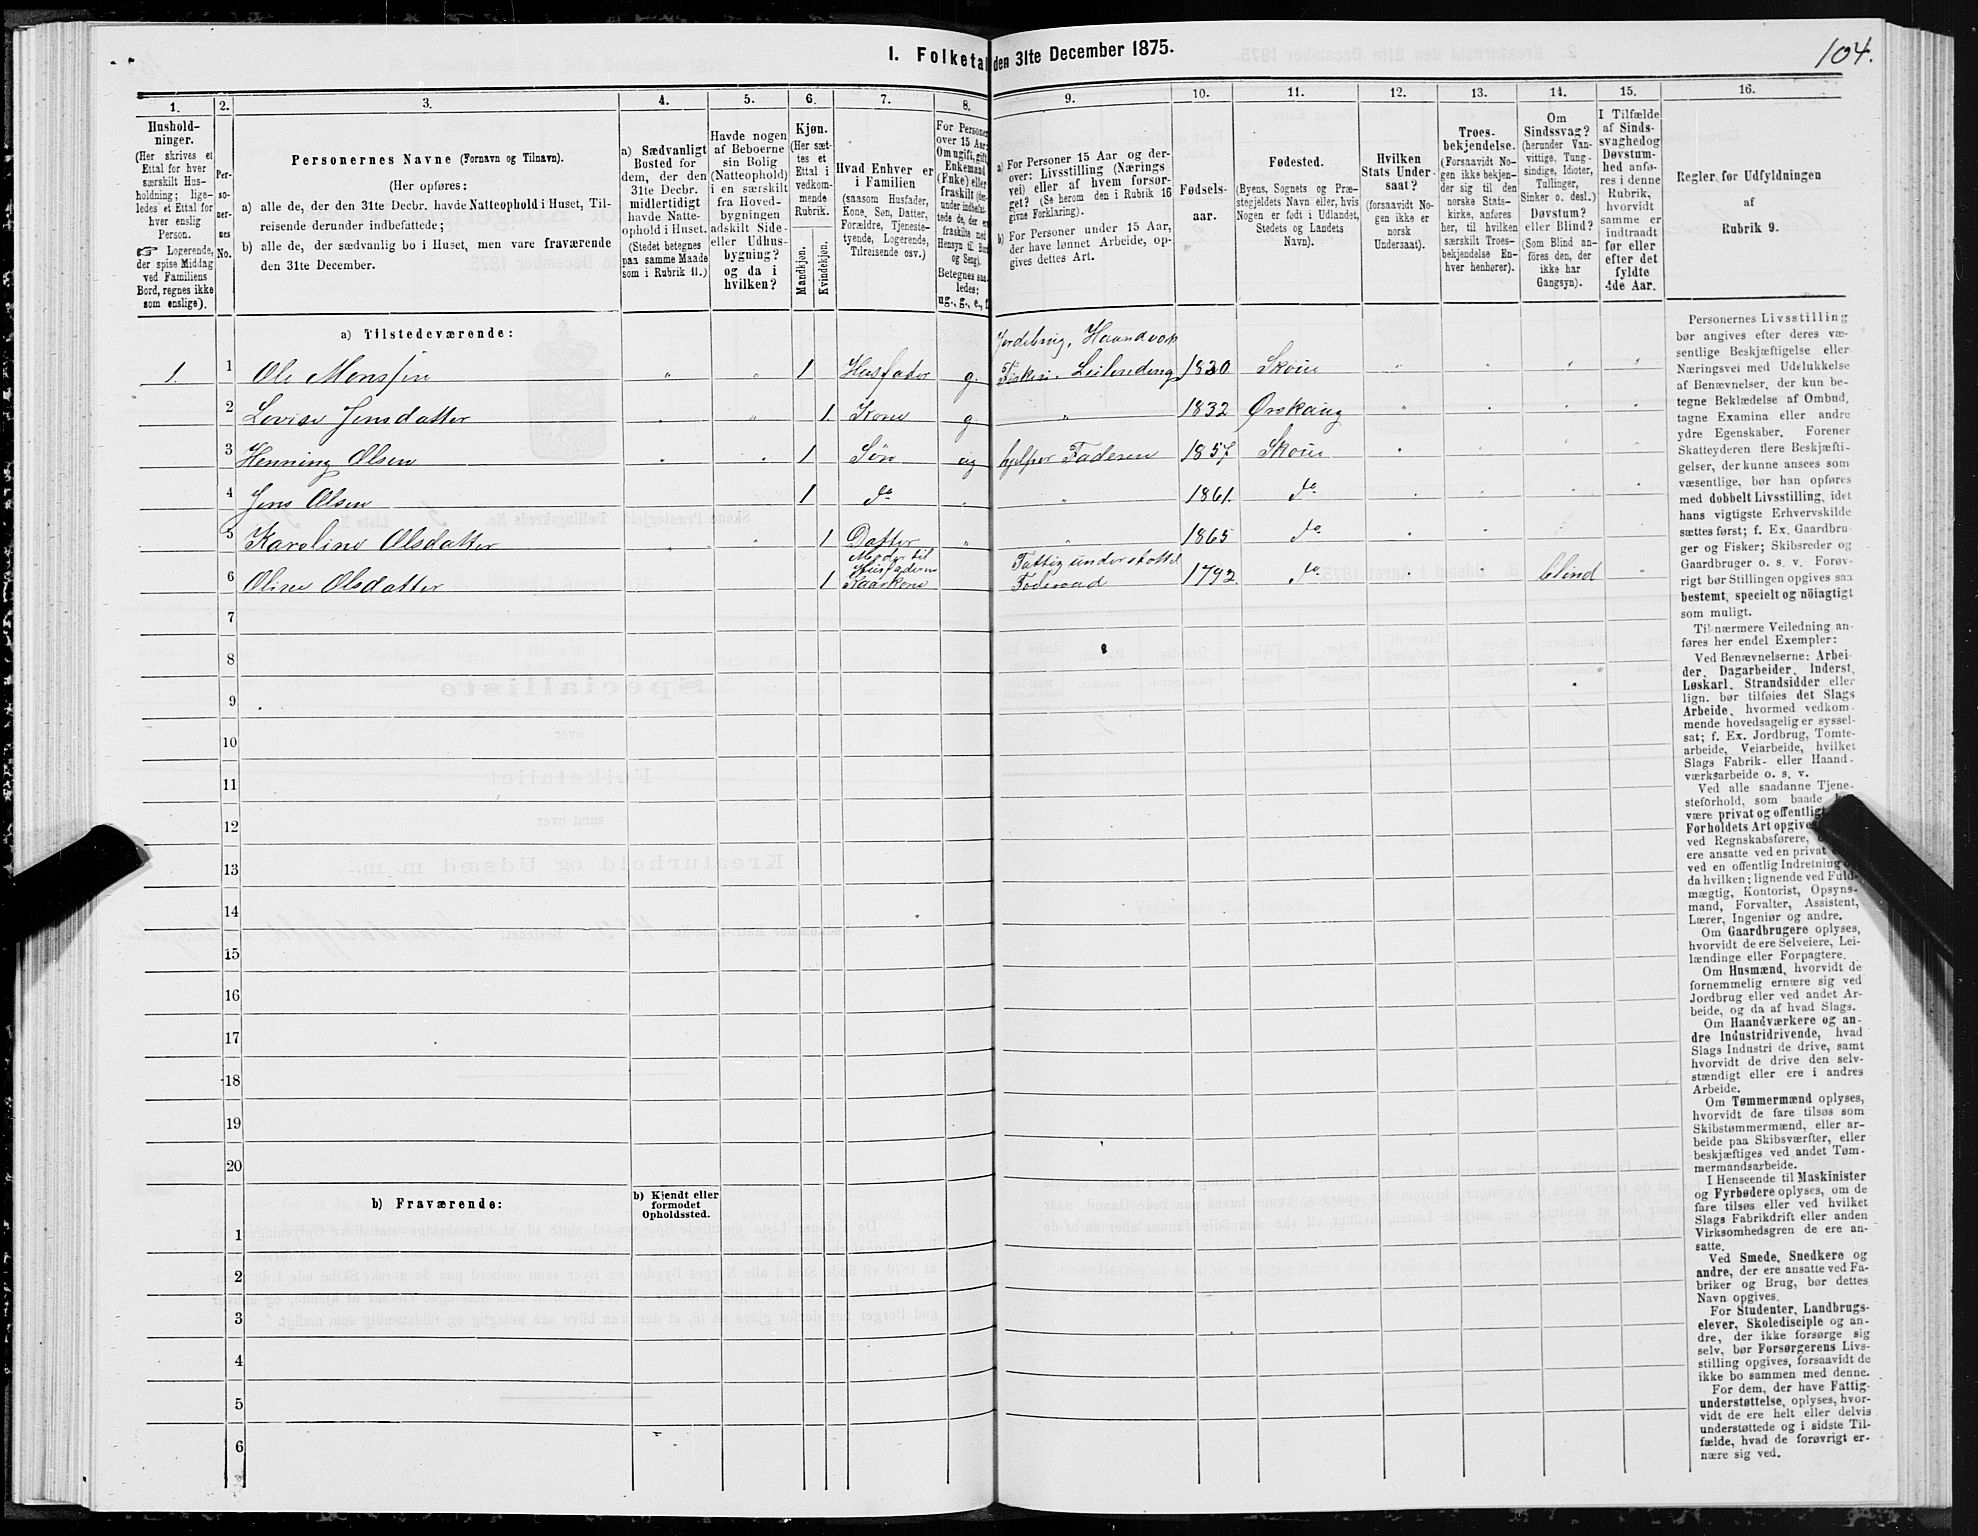 104.
1. Folketal den 31te December 1875.
1.
2.
3.
4.
5.
6.
7.
8.
9.
10.
11.
12.
13.
14.
15.
16.
Hushold-
ninger.
(Her skrives et
Ettal for hver
særskilt Hus-
holdning; lige-
ledes et Ettal for
hver enslig
Person.
☞ Logerende,
der spise Middag
ved Familiens
Bord, regnes ikke
som enslige).
Per-
so-
ner-
nes
No.
Personernes Navne (Fornavn og Tilnavn).
(Her opføres:
a) alle de, der den 31te Decbr. havde Natteophold i Huset, Til-
reisende derunder indbefattede;
b) alle de, der sædvanlig bo i Huset, men vare fraværende
den 31te December.
a) Sædvanligt
Bosted for
dem, der den
31te Decbr.
midlertidigt
havde Natte-
ophold i Huset.
(Stedet betegnes
paa samme Maade
som i Rubrik 11.)
Havde nogen
af Beboerne
sin Bolig
(Natteophold)
i en særskilt
fra Hoved-
bygningen
adskilt Side-
eller Udhus-
bygning?
og da i
hvilken?
Kjøn.
(Her sæt-
tes et
Ettal i
vedkom-
mende
Rubrik.
Mandkjøn.
Kvindekjøn.
Hvad Enhver er
i Familien
(saasom Husfader,
Kone, Søn, Datter,
Forældre, Tjeneste-
tyende, Logerende,
Tilreisende osv.)
For Personer
over 15 Aar:
Om ugift, gift,
Enkemand
(Enke) eller
fraskilt (der-
under indbefat-
tede de, der er
fraskilte med
Hensyn til Bord
og Seng).
Betegnes saa-
ledes:
ug., g., e., f.
a) For Personer 15 Aar og der-
over: Livsstilling (Nærings-
vei) eller af hvem forsør-
get? (Se herom den i Rubrik 16
givne Forklaring).
b) For Personer under 15 Aar,
der have lønnet Arbeide, op-
gives dettes Art.
Fødsels-
aar.
Fødested.
(Byens, Sognets og Præ-
stegjeldets Navn eller, hvis
Nogen er født i Udlandet,
Stedets og Landets
Navn).
Hvilken
Stats Under-
saat?
(forsaavidt No-
gen ikke er
norsk
Undersaat).
Troes-
bekjendelse.
(Forsaavidt No-
gen ikke bekjen-
der sig til den
norske Stats-
kirke, anføres
her, til hvilken
særskilt Troes-
bekjendelse En-
hver henhører).
Om
Sindssvag?
(herunder Van-
vittige, Tung-
sindige, Idioter,
Tullinger,
Sinker o. desl.)
Døvstum?
eller Blind?
(Som Blind an-
føres den, der
ikke har
Gangsyn).
I Tilfælde
af Sinds-
svaghed og
Døvstum-
hed anfø-
res i denne
Rubrik,
hvorvidt
samme er
indtraadt
før eller
efter det
fyldte
4de Aar.
Regler for Udfyldningen
af
Rubrik 9.
a) Tilstedeværende:
Jordebrug, Haandværk
1. 1 Ole Monssen " " 1 Husfader g. Fiskeri. Leilending 1820 Skoue " " " "
2 Lovise Jensdatter 1. Kone g " 1832 Ørskaug
3 Henning Olsen 1 Søn ug hjelper Faderen 1857 Skoue
4 Jens Olsen 1 do " 1861. do
5 Karoline Olsdatter 1 Datter " " 1865 do
Moder til
Husfaderen
Fattigunderstøttet
6 Oline Olsdatter 1 Kaarkone Føderaad 1792 do blind
7
8
9
10
11
12
13
14
15
16
17
18
19
20
b) Fraværende:
b) Kjendt eller
formodet
Opholdssted.
1
2
3
4
5
6
Personernes Livsstilling
bør angives efter deres væ-
sentlige Beskjæftigelse eller
Næringsvei med Udelukkelse
af Benævnelser, der kun be-
tegne Beklædelse af Ombud,
tagne Examina eller andre
ydre Egenskaber. Forener
Skatteyderen flere Beskjæfti-
gelser, der kunne ansees som
væsentlige, bør han opføres
med dobbelt Livsstilling, idet
hans vigtigste Erhvervskilde
sættes først; f. Ex. Gaardbru-
ger og Fisker; Skibsreder og
Gaardbruger o. s. v. Forøv-
rigt bør Stillingen opgives saa
bestemt, specielt og nöiagtigt
som muligt.
Til nærmere Veiledning an-
føres her endel Exempler:
Ved Benævnelserne: Arbei-
der, Dagarbeider, Inderst,
Løskarl, Strandsidder eller
lign. bør tilføies det Slags
Arbeide, hvormed vedkom-
mende hovedsagelig er syssel-
sat; f. Ex. Jordbrug, Tomte-
arbeide, Veiarbeide, hvilket
Slags Fabrik- eller Haand-
værksarbeide o. s. v.
Ved alle saadanne Tjene-
steforhold, som baade
være privat og offentligt
Forholdets Art opgives
ved Regnskabsførere,
ere ansatte ved en privat
ved en offentlig Indretning
da hvilken; lignende ved Fuld-
mægtig, Kontorist, Opsyns-
mand, Forvalter, Assistent,
Lærer, Ingeniør og andre.
Om Gaardbrugere oplyses,
hvorvidt de ere Selveiere, Lei-
lændinge eller Forpagtere.
Om Husmænd, hvorvidt de
fornemmelig ernære sig ved
Jordbrug eller ved andet Ar-
beide, og da af hvad Slags.
Om Haandværkere og an-
dre Industridrivende, hvad
Slags Industri de drive, samt
hvorvidt de drive den selv-
stændigt eller ere i andres
Arbeide.
Om Tømmermænd oplyses,
hvorvidt de fare tilsøs som
Skibstømmermænd, eller ar-
beide paa Skibsværfter, eller
beskjæftiges ved andet Tøm-
mermandsarbeide.
I Henseende til Maskinister
og Fyrbødere oplyses, om de
fare tilsøs eller ved hvilket
Slags Fabrikdrift eller anden
Virksomhedsgren de ere an-
satte.
Ved Smede, Snedkere og
andre, der ere ansatte ved Fa-
briker og Brug, bør dettes
Navn opgives.
For Studenter, Landbrugs-
elever, Skoledisciple og an-
dre, der ikke forsørge sig
selv, bør Forsørgerens Livs-
stilling opgives, forsaavidt de
ikke bo sammen med denne.
For dem, der have Fattig-
understøttelse, oplyses, hvor-
vidt de ere helt eller delvis
understøttede og i sidste Til-
fælde, hvad de forøvrigt er-
nære sig ved.